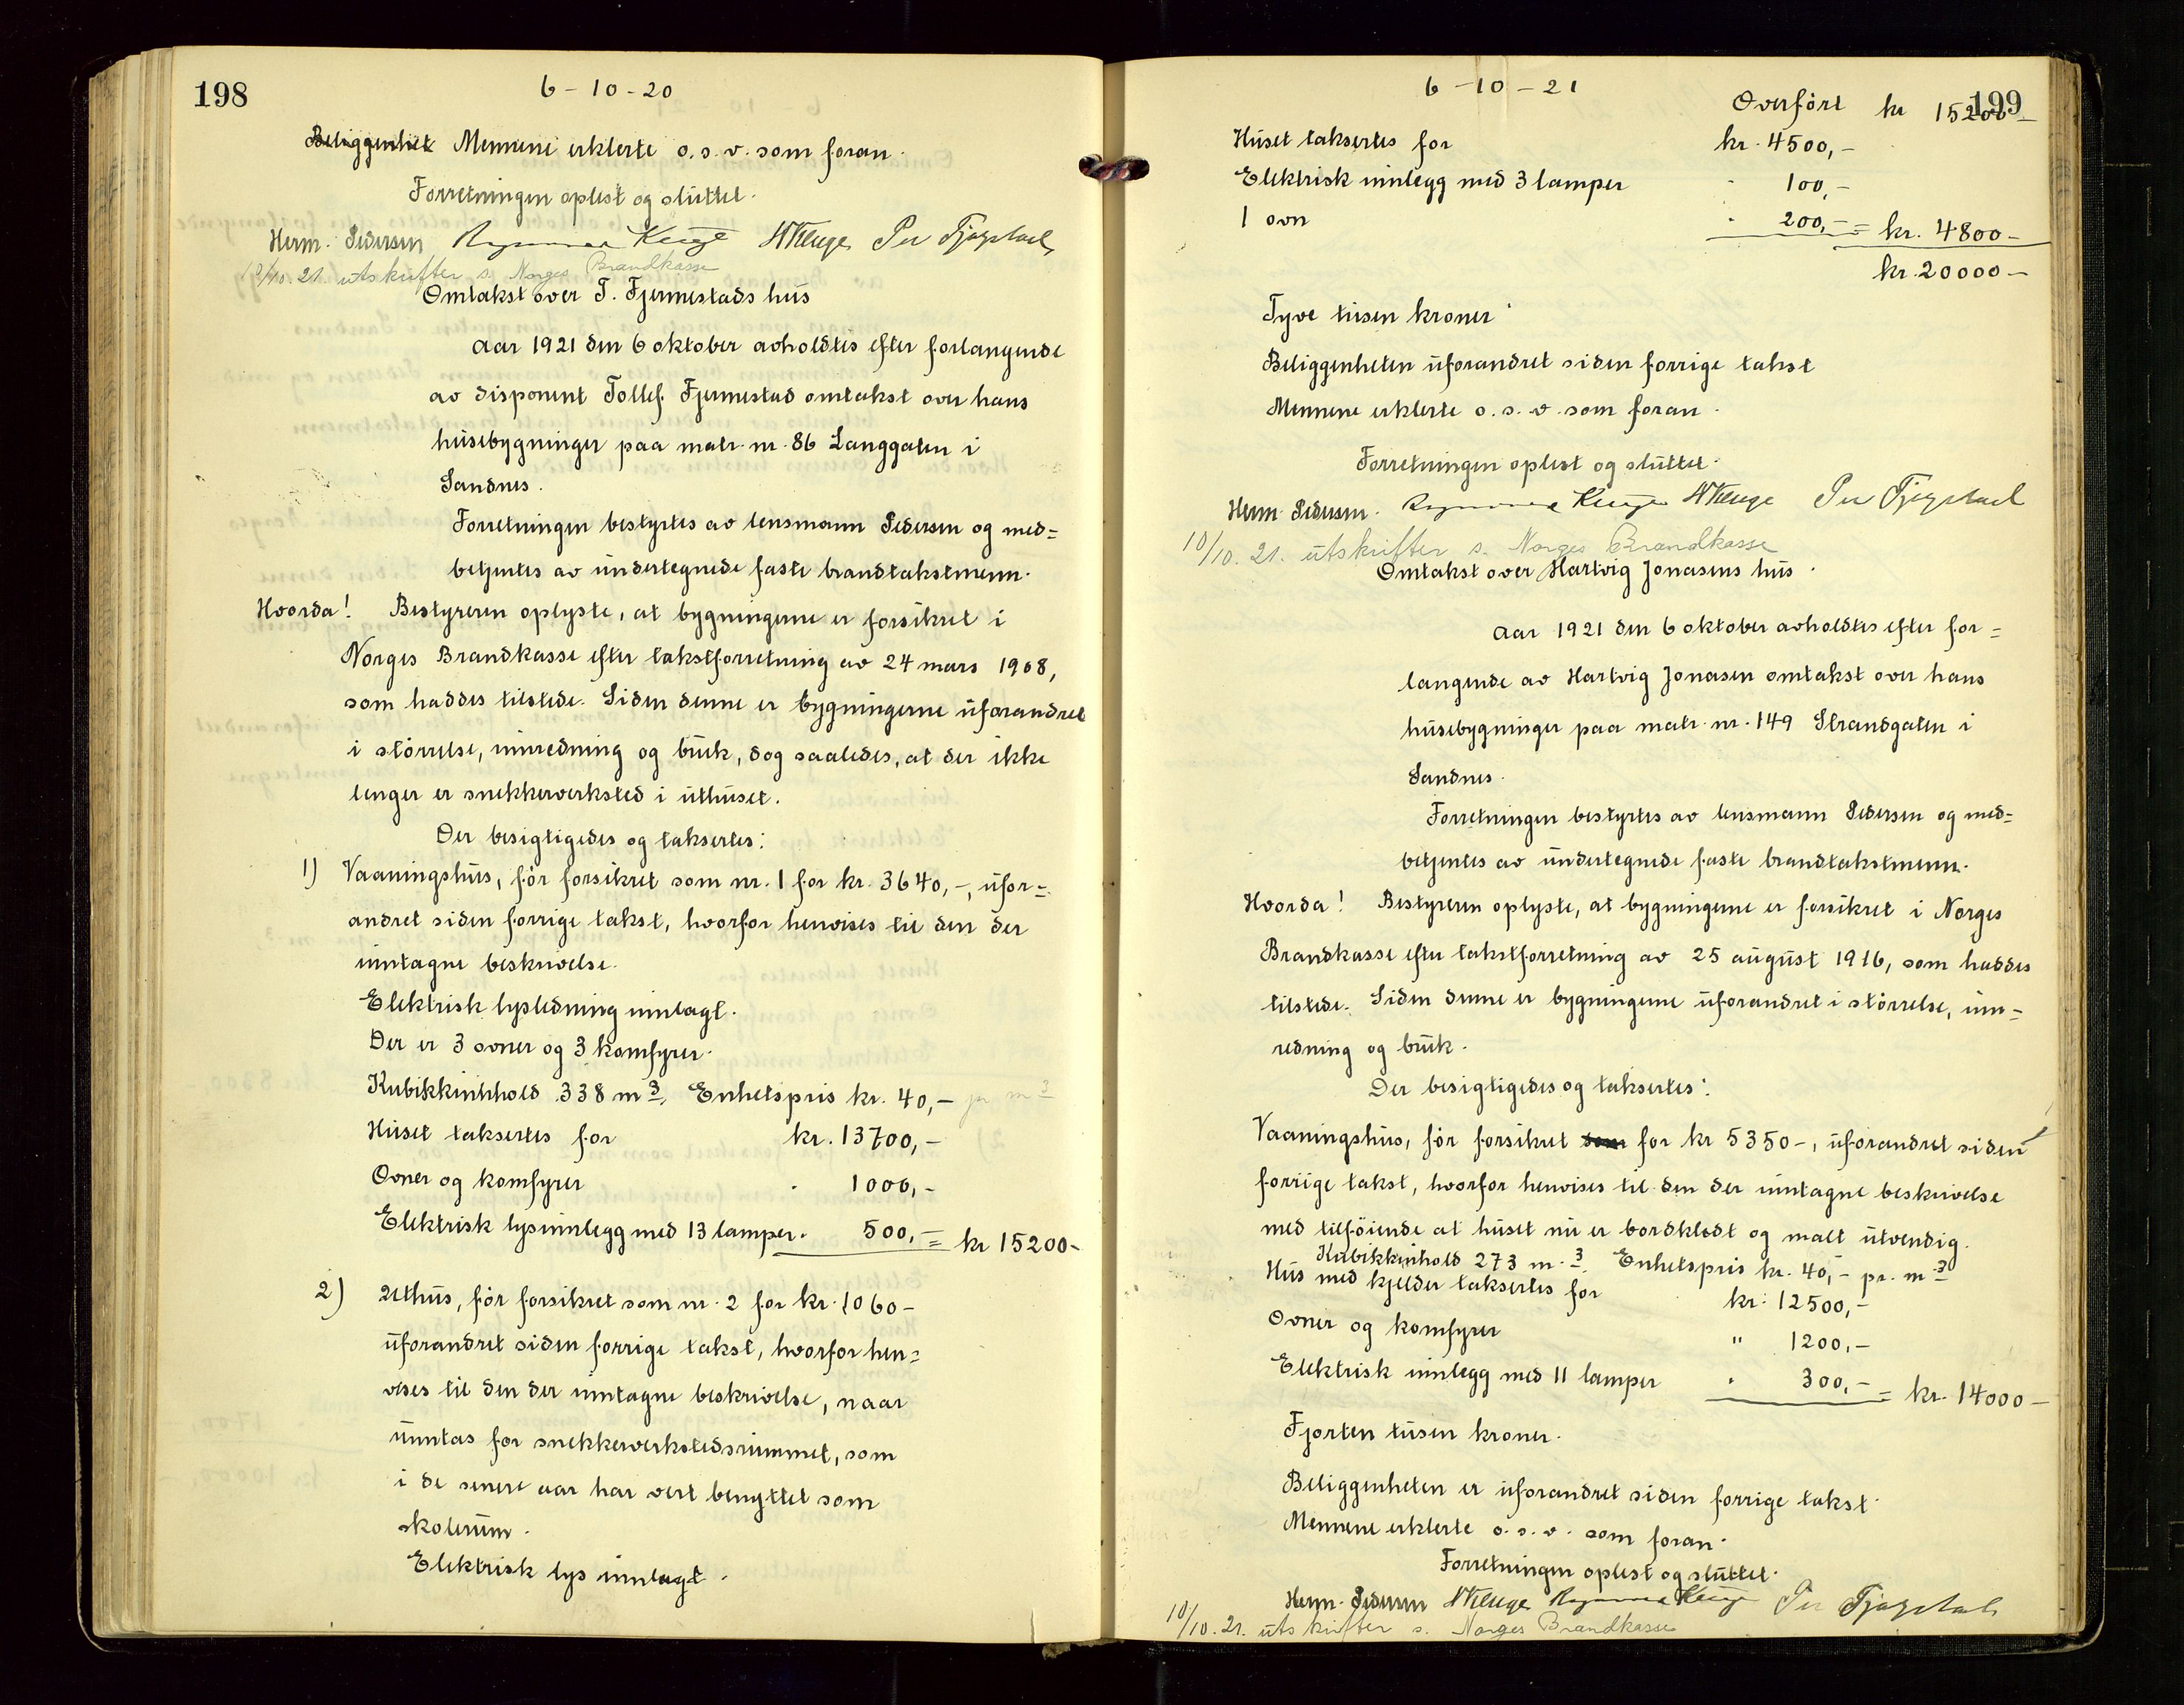 198
6-10-20
Beliggenhet Mennene erklerte o.s.v. som foran.
Forretningen oplest og sluttet.
Herm. Pedersen
10/10.21. utskrifter s. Norges Brandkasse
Omtakst over T. Fjermestads hus
Aar 1921 den 6 oktober avholdtes efter forlangende
av disponent Tollef. Fjermestad omtakst over hans
husebygninger paa matr. nr. 86 Langgaten i
Sandnes.
Forretningen bestyrtes av lensmann Pedersen og med=
betjentes av undertegnede faste brandtakstmenn.
Hvorda! Bestyreren oplyste, at bygningerne er forsikret i
Norges Brandkasse efter takstforretning av 24 mars 1908,
som haddes tilstede. Siden denne er bygningerne uforandret
i størrelse, innredning og bruk, dog saaledes, at der ikke
lenger er snekkerverksted i uthuset.
Der besigtigedes og taksertes:
1) Vaaningshus, før forsikret som nr. 1 for kr. 3640,-, ufor=
andret siden forrige takst, hvorfor henvises til den der
inntagne beskrivelse.
Elektrisk lysledning innlagt.
Der er 3 ovner og 3 komfyrer.
Kubikkinhhold 338 m3. Enhetspris kr. 40,- pr m3
Huset taksertes for kr. 13700,-
Ovner og komfyrer . 1000,-
Elektrisk lysinnlegg med 13 lamper . 500,- = kr 15200-
2) Uthus, før forsikret som nr. 2 for kr. 1060-
uforandret siden forrige takst, hvorfor hen=
vises til den der inntagne beskrivelse, naar
unntas for snekkerverkstedsrummet, som
i de senere aar har vert benyttet som
skolerum.
Elektrisk lys innlagt.
199
6-10-21
Overført kr 15200-
Huset taksertes for kr. 4500,-
Elektrisk innlegg med 3 lamper . 100,-
1 ovn . 200,- = kr. 4800-
kr. 20000-
Tyve tusen kroner.
Beliggenheten uforandret siden forrige takst
Mennene erklerte o.s.v. som foran.
Forretningen oplest og sluttet.
Herm. Pedersen.
10/10.21. utskrifter s. Norges Brandkasse
Omtakst over Hartvig Jonasens hus.
Aar 1921 den 6 oktober avholdtes efter for=
langende av Hartvig Jonasen omtakst over hans
husebygninger paa matr. nr. 149 Strandgaten i
Sandnes.
Forretningen bestyrtes av lensmann Pedersen og med=
betjentes av undertegnede faste brandtakstmenn.
Hvorda! Bestyreren oplyste, at bygningerne er forsikret i Norges
Brandkasse efter takstforretning av 25 august 1916, som haddes
tilstede. Siden denne er bygningerne uforandret i størrelse, inn=
redning og bruk.
Der besigtigedes og taksertes:
Vaaningshus, før forsikret som for kr 5350-, uforandret siden
forrige takst, hvorfor henvises til den der inntagne beskrivelse
med tilføiende at huset nu er bordkledt og malt utvendig.
Kubikkinhold 273 m.3. Enhetspris kr. 40,- pr. m.3
Hus med kjelder taksertes for kr. 12500,-
Ovner og komfyrer " 1200,-
Elektrisk innlegg med 11 lamper . 300,- = kr. 14000-
Fjorten tusen kroner.
Beliggenheten er uforandret siden forrige takst.
Mennene erklerte o.s.v. som foran.
Forretningen oplest og sluttet.
Herm. Pedersen
10/10.21. utskrifter s. Norges Brandkasse